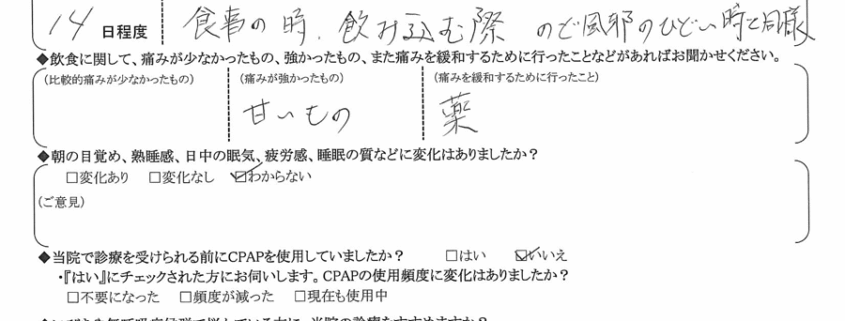 14 日程度 食事の時、飲み込む際 のど風邪のひどい時と同様
◆飲食に関して、痛みが少なかったもの、強かったもの、また痛みを緩和するために行ったことなどがあればお聞かせください。
(比較的痛みが少なかったもの) (痛みが強かったもの) (痛みを緩和するために行ったこと)
甘いもの 薬
◆朝の目覚め、熟睡感、日中の眠気、疲労感、睡眠の質などに変化はありましたか？
□変化あり □変化なし ☑わからない
(ご意見)
◆当院で診療を受けられる前にCPAPを使用していましたか？ □はい ☑いいえ
・『はい』にチェックされた方にお伺いします。CPAPの使用頻度に変化はありましたか？
□不要になった □頻度が減った □現在も使用中